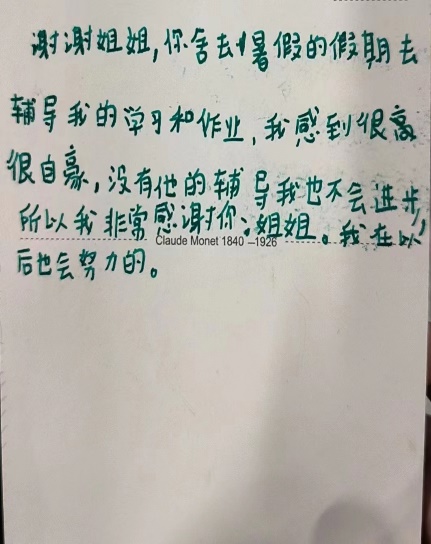 谢谢姐姐，你舍去暑假的假期去
辅导我的学习和作业，我感到很高
很自豪，没有他的辅导我也不会进步，
所以我非常感谢你；姐姐。我在以
Claude Monet 1840 –1926
后也会努力的。